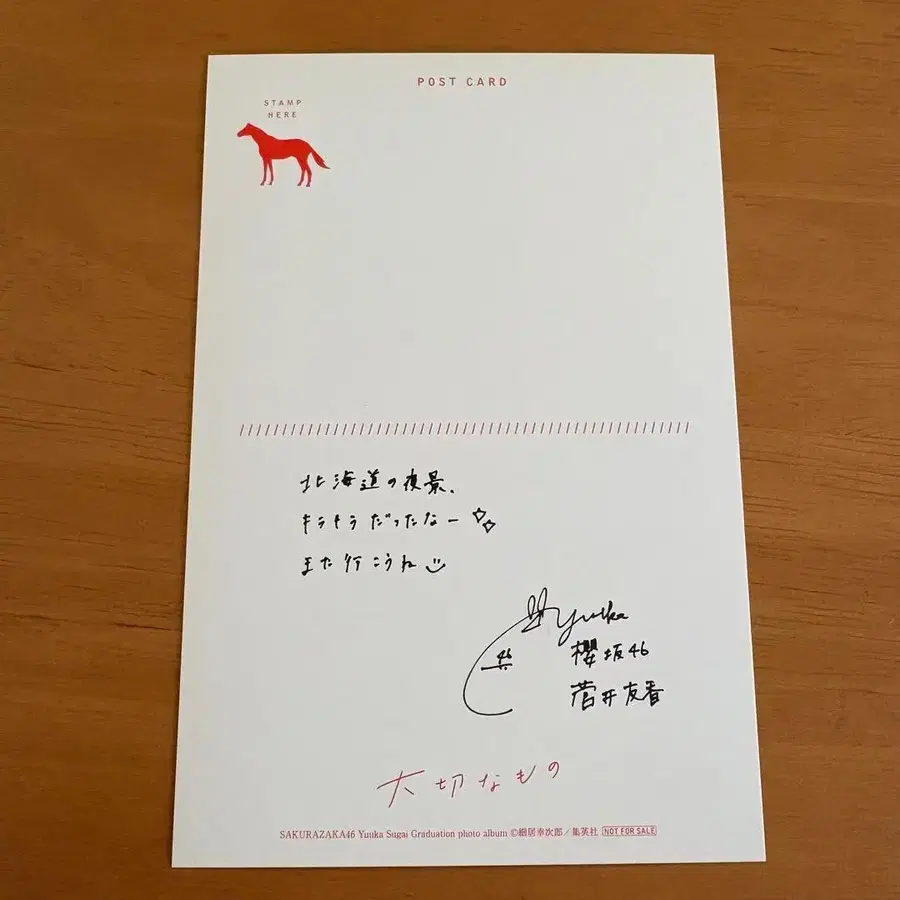 POST CARD
STAMP
HERE
北海道の夜景、
キラキラだったなー
また行こうね
Yuuka
46
櫻坂46
菅井友香
大切なもの
SAKURAZAKA46 Yuuka Sugai Graduation photo album ©細居幸次郎／集英社 NOT FOR SALE